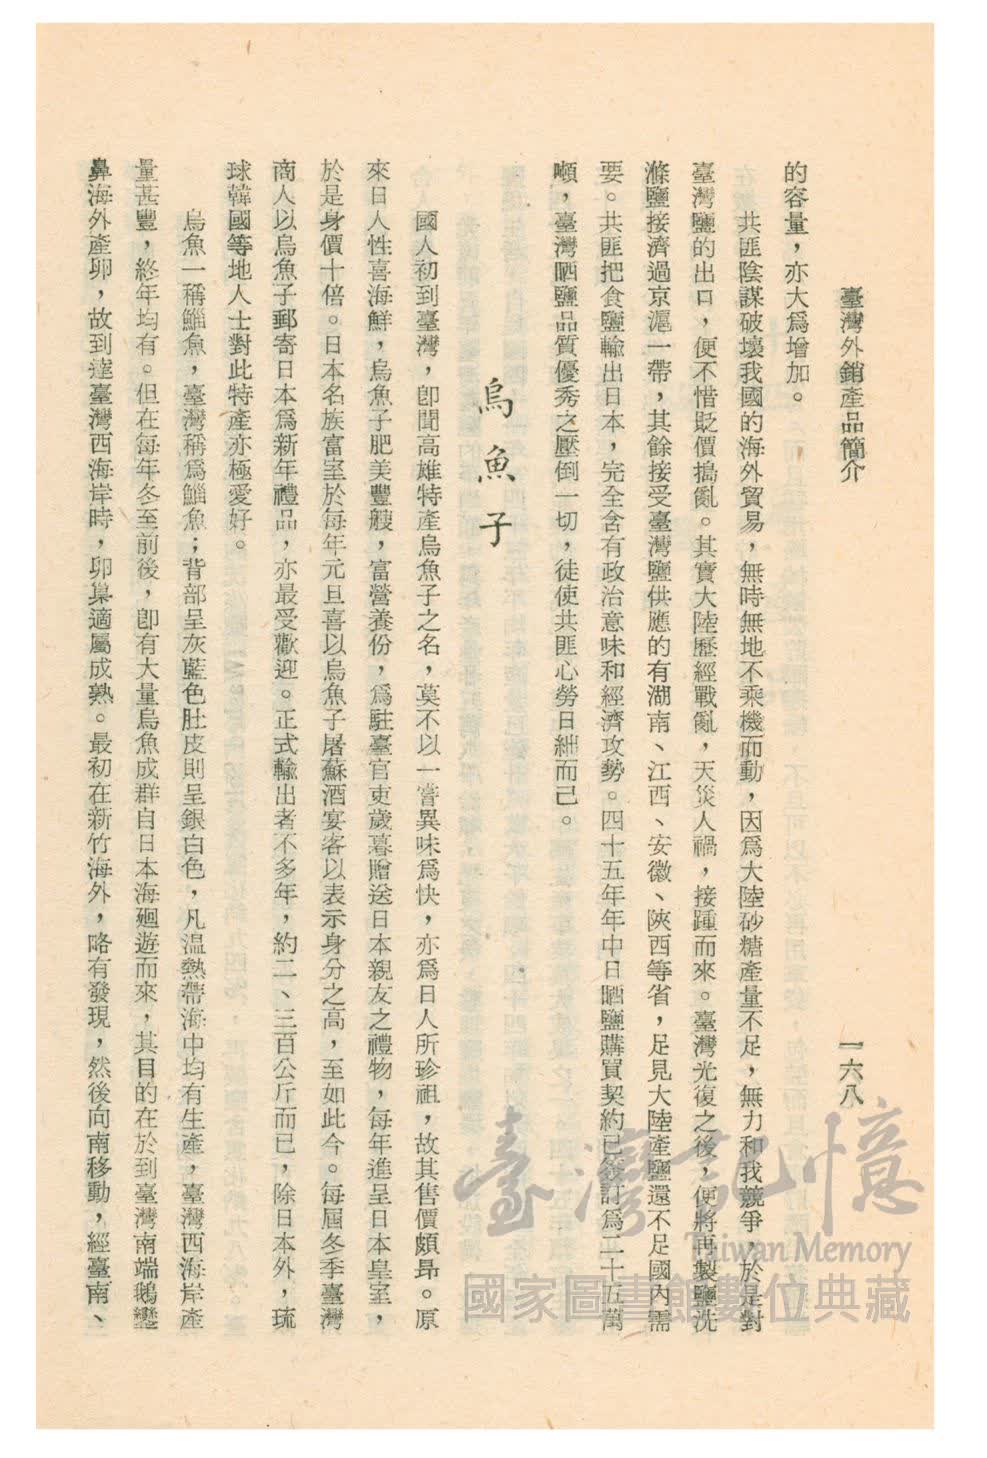 臺灣外銷產品簡介
一六八
的容量，亦大爲增加。
共匪陰謀破壞我國的海外貿易，無時無地不乘機而動，因爲大陸砂糖產量不足，無力和我競爭，於是對
臺灣鹽的出口，便不惜貶價搗亂。其實大陸歷經戰亂，天災人禍，接踵而來。臺灣光復之後，便將再製鹽洗
滌鹽接濟過京滬一帶，其餘接受臺灣鹽供應的有湖南、江西、安徽、陝西等省，足見大陸產鹽還不足國內需
要。共匪把食鹽輸出日本，完全含有政治意味和經濟攻勢。四十五年年中日晒鹽購買契約已簽訂爲二十五萬
噸，臺灣晒鹽品質優秀之壓倒一切，徒使共匪心勞日絀而已。
烏魚子
國人初到臺灣，卽聞高雄特產烏魚子之名，莫不以一嘗異味爲快，亦爲日人所珍祖，故其售價頗昂。原
來日人性喜海鮮，烏魚子肥美豐艘，富營養份，爲駐臺官吏歲暮贈送日本親友之禮物，每年進呈日本皇室，
於是身價十倍。日本名族富室於每年元旦喜以烏魚子屠蘇酒宴客以表示身分之高，至如此今。每屆冬季臺灣
商人以烏魚子郵寄日本爲新年禮品，亦最受歡迎。正式輸出者不多年，約二、三百公斤而已，除日本外，琉
球韓國等地人士對此特產亦極愛好。
烏魚一稱鯔魚，臺灣稱爲鯔魚；背部呈灰藍色肚皮則呈銀白色，凡溫熱帶海中均有生產，臺灣西海岸產
量甚豐，終年均有。但在每年冬至前後，卽有大量烏魚成群自日本海廻遊而來，其目的在於到臺灣南端鵝鑾
鼻海外產卵，故到達臺灣西海岸時，卵巢適屬成熟。最初在新竹海外，略有發現，然後向南移動，經臺南、
臺灣記憶
Taiwan Memory
國家圖書館數位典藏